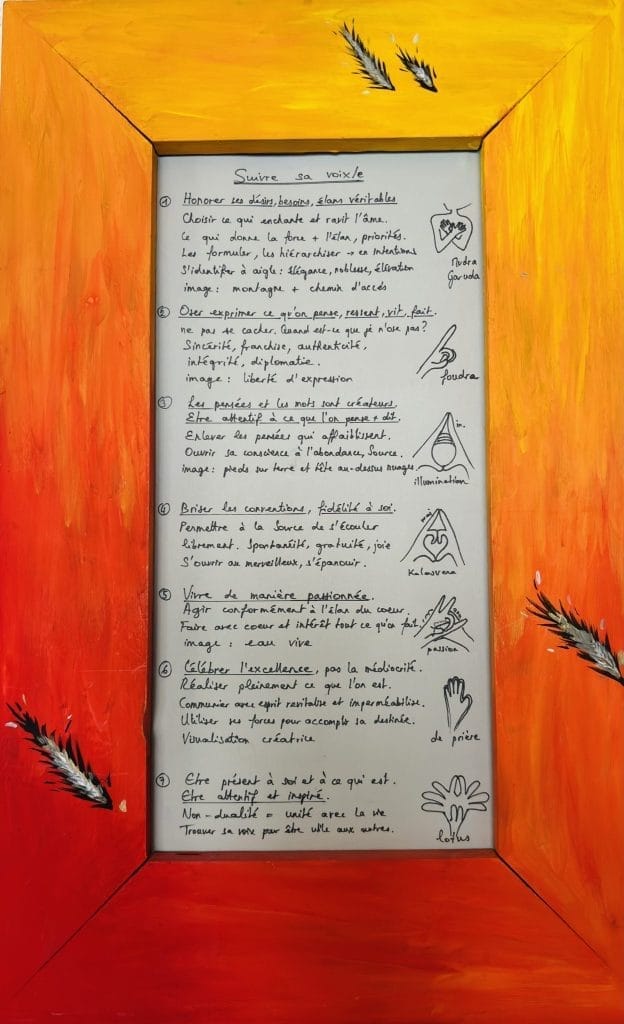 Suivre sa voix/e
① Honorer ses désirs, besoins, élans véritables
Choisir ce qui enchante et ravit l'âme.
Ce qui donne la force + l'élan, priorités.
Les formuler, les hiérarchiser → en intentions
S'identifier à aigle : élégance, noblesse, élévation
image : montagne + chemin d'accès
Mudra
Garuda
② Oser exprimer ce qu'on pense, ressent, vit, fait.
ne pas se cacher. Quand est-ce que je n'ose pas ?
Sincérité, franchise, authenticité,
intégrité, diplomatie.
image : liberté d'expression
foudra
③ Les pensées et les mots sont créateurs.
Etre attentif à ce que l'on pense + dit.
Enlever les pensées qui affaiblissent.
Ouvrir sa conscience à l'abondance, Source.
image : pieds sur terre et tête au-dessus nuages.
in.
illumination
④ Briser les conventions, fidélité à soi.
Permettre à la Source de s'écouler
librement. Spontanéité, gratuité, joie
S'ouvrir au merveilleux, s'épanouir.
Kalesvara
⑤ Vivre de manière passionnée.
Agir conformément à l'élan du coeur.
Faire avec coeur et intérêt tout ce qu'on fait.
image : eau vive
passion
⑥ Célébrer l'excellence, pas la médiocrité.
Réaliser pleinement ce que l'on est.
Communier avec esprit revitalise et imperméabilise.
Utiliser ses forces pour accomplir sa destinée.
Visualisation créatrice
de prière
⑦ Etre présent à soi et à ce qui est.
Etre attentif et inspiré.
Non-dualité = unité avec la vie
Trouver sa voix pour être utile aux autres.
lotus